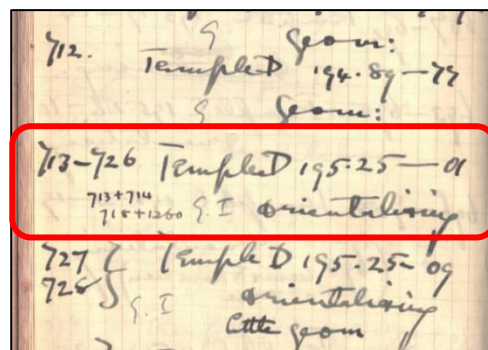 G geom:
712. Temple D 194.89–79
G geom:
713–726 Temple D 195.25—01
713+714
715+1260 G. I orientalising
727 } Temple D 195.25–09
728 G. I orientalising
little geom